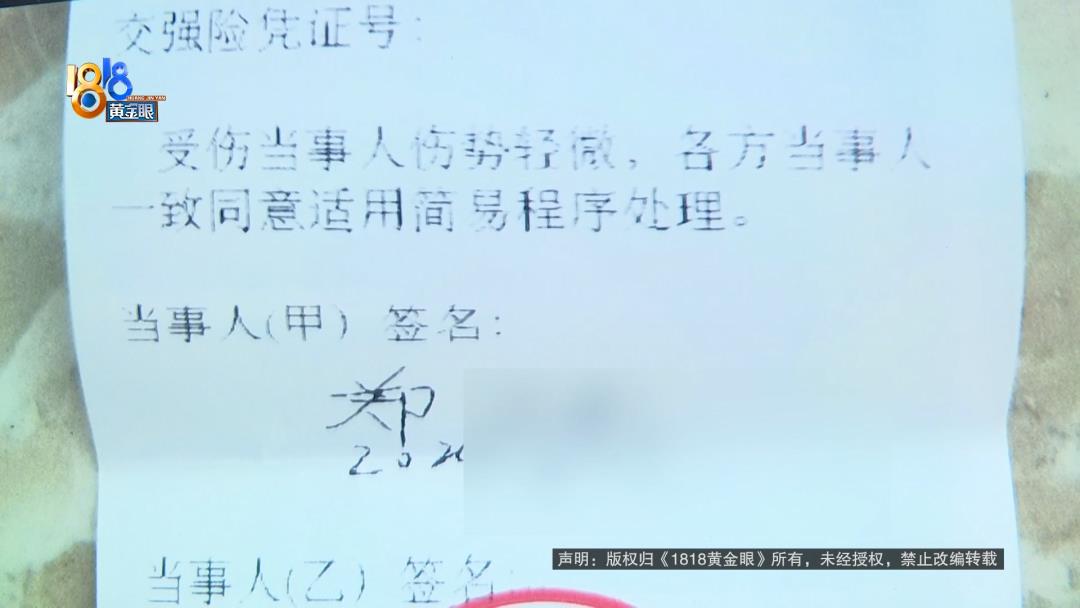 交强险凭证号：
1818
HUANG JIN YAN
黄金眼
受伤当事人伤势轻微，各方当事人
一致同意适用简易程序处理。
当事人(甲) 签名：
郑
当事人(乙) 签名：
声明：版权归《1818黄金眼》所有，未经授权，禁止改编转载